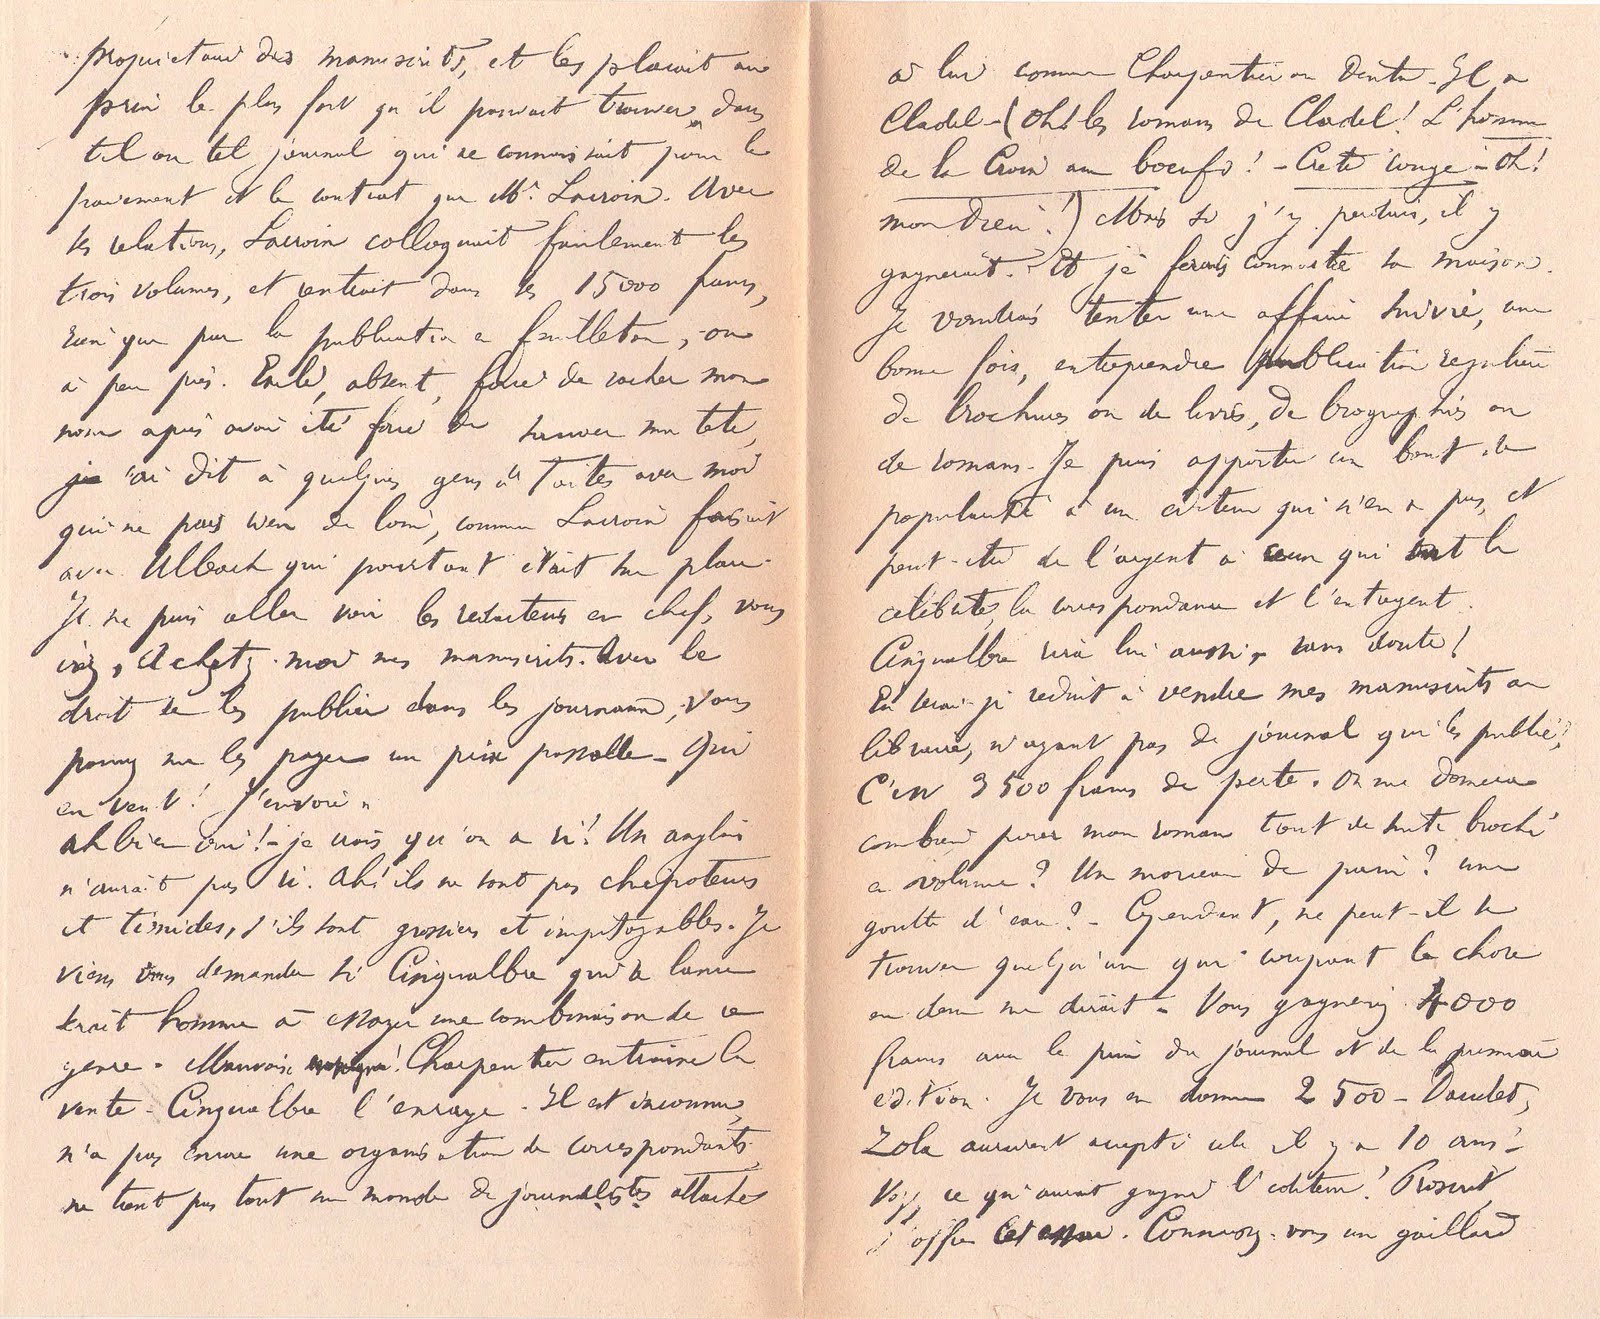 propriétaire des manuscrits, et les plaçait au
prix le plus fort qu'il pouvait trouver, dans
tel ou tel journal qui se connaissait pour le
paiement et le contrat que Mr. Lacroix. Avec
ses relations, Lacroix colloquait facilement les
trois volumes, et rentrait dans ses 15000 francs,
rien que par la publication en feuilleton, ou
à peu près. Exilé, absent, forcé de cacher mon
nom après avoir été forcé de sauver ma tête,
j'ai dit à quelques gens "Traitez avec moi
qui ne puis rien de loin, comme Lacroix faisait
avec Ulbach qui pourtant était sur place.
Je ne puis aller voir les rédacteurs en chef, vous
irez, Achetez-moi mes manuscrits. Avec le
droit de les publier dans les journaux, vous
pouvez me les payer un prix passable - Qui
en veut! J'envoie"
Ah bien oui! - je crois qu'on a ri! Un anglais
n'aurait pas ri. Ah! ils ne sont pas chipoteurs
et timides, s'ils sont grossiers et impitoyables. Je
viens vous demander si Cinqualbre qui a l'air
serait homme à essayer une combinaison de ce
genre. Mauvaise ! Charpentier entraine la
vente - Cinqualbre l'enraye. Il est inconnu,
n'a pas encore une organisation de correspondants,
ne tient pas tout un monde de journalistes attachés
à lui comme Charpentier ou Dentu - Il a
Cladel - (Oh! les romans de Cladel! L'homme
de la Croix aux boeufs! - Crête rouge - Oh!
mon Dieu!) Mais si j'y perdais, il y
gagnerait. Et je ferais connaître sa maison.
Je voudrais tenter une affaire suivie, une
bonne fois, entreprendre publication régulière
de brochures ou de livres, de biographies ou
de romans. Je puis apporter un bout de
popularité à un éditeur qui n'en a pas, et
peut-être de l'argent à ceux qui ont la
célébrité, la correspondance et l'entregent.
Cinqualbre rira lui aussi, sans doute!
En serai-je réduit à vendre mes manuscrits au
libraire, n'ayant pas de journal qui les publie?
C'est 3500 francs de perte. On me donnera
combien pour mon roman tout de suite broché
en volume? Un morceau de pain? une
goutte d'eau? - Cependant, ne peut-il se
trouver quelqu'un qui coupant la chose
en deux me dirait - Vous gagneriez 4000
francs avec le prix du journal et de la première
édition. Je vous en donne 2500 - Daudet,
Zola auraient accepté cela il y a 10 ans!
Voyez ce qu'aurait gagné l'éditeur! Proscrit,
j'offre . Connaissez-vous un gaillard